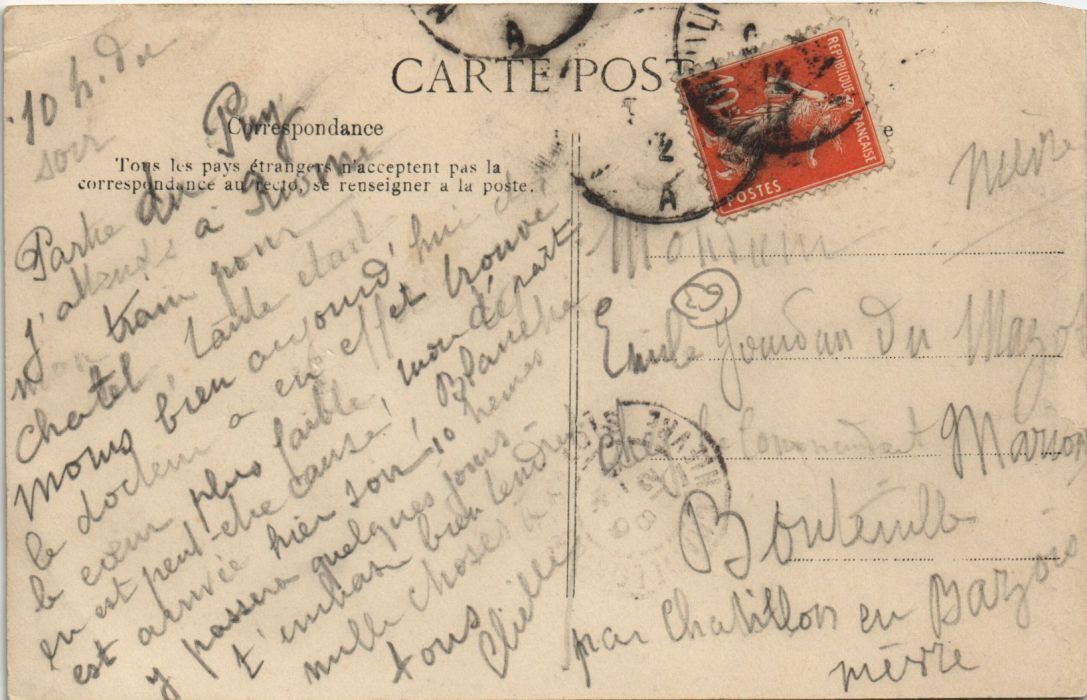 CARTE POST
Correspondance
Tous les pays étrangers n'acceptent pas la
correspondance au recto, se renseigner a la poste.
REPUBLIQUE FRANÇAISE
10
POSTES
A
A
10 h. du
soir
Partie du Puy
j'attends à
mon train pour
Chatel, tante était
moins bien aujourd'hui
le docteur a en effet trouvé
le cœur plus faible, mon départ
en est peut-être cause, Blanche
est arrivée hier soir 10 heures
y passera quelques jours
t'embrasse bien tendrement
mille choses à
tous
Nièvre
Monsieur
Emile Jourdan du Mazot
Commandant Marion
Bouteuille
par Chatillon en Bazois
nièvre